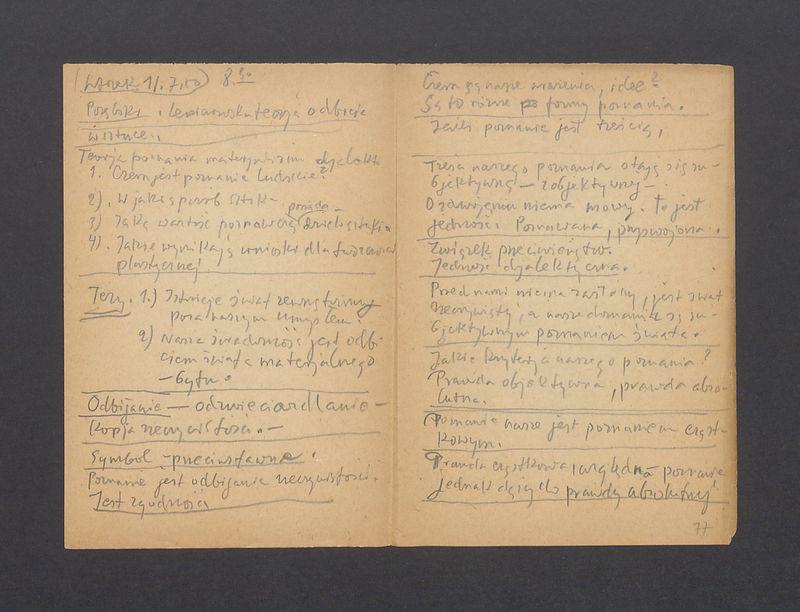 (Wtorek 11.7.50) 8.30
Porębski. Leninowska teoria odbicia
w sztuce.
Teoria poznania materializmu dialekt.
1. Czem jest poznanie ludzkie?
2). W jaki sposób sztuk-
3) Jaką wartość poznawczą posiada dzieło sztuki
4). Jakie wynikają wnioski dla twórczości
plastycznej!
Tezy. 1.) Istnieje świat zewnętrzny
poza naszym umysłem.
2) Nasza świadomość jest odbi-
ciem świata materialnego
– bytu.
Odbijanie – odzwierciadlanie –
kopja rzeczywistości. –
Symbol – przeciwstawne.
Poznanie jest odbijanie rzeczywistości.
Jest zgodność
Czem są nasze wrażenia, idee?
Są to różne formy poznania.
Jeśli poznanie jest treścią,
Treść naszego poznania stają się su-
bjektywną – z objektywnej –
O zdwojeniu niema mowy. To jest
jedność: Poznawana, przyswojona.
Związek przeciwieństw.
Jedność djalektyczna.
Przed nami niema zasłony, jest świat
rzeczywisty, a nasze doznania są su-
bjektywnym poznaniem świata.
Jakie kryterja naszego poznania?
Prawda objektywna, prawda abso-
lutna.
Poznanie nasze jest poznaniem cząst-
kowym.
Prawda cząstkowa, względna poznanie
jednak dąży do prawdy absolutnej
77